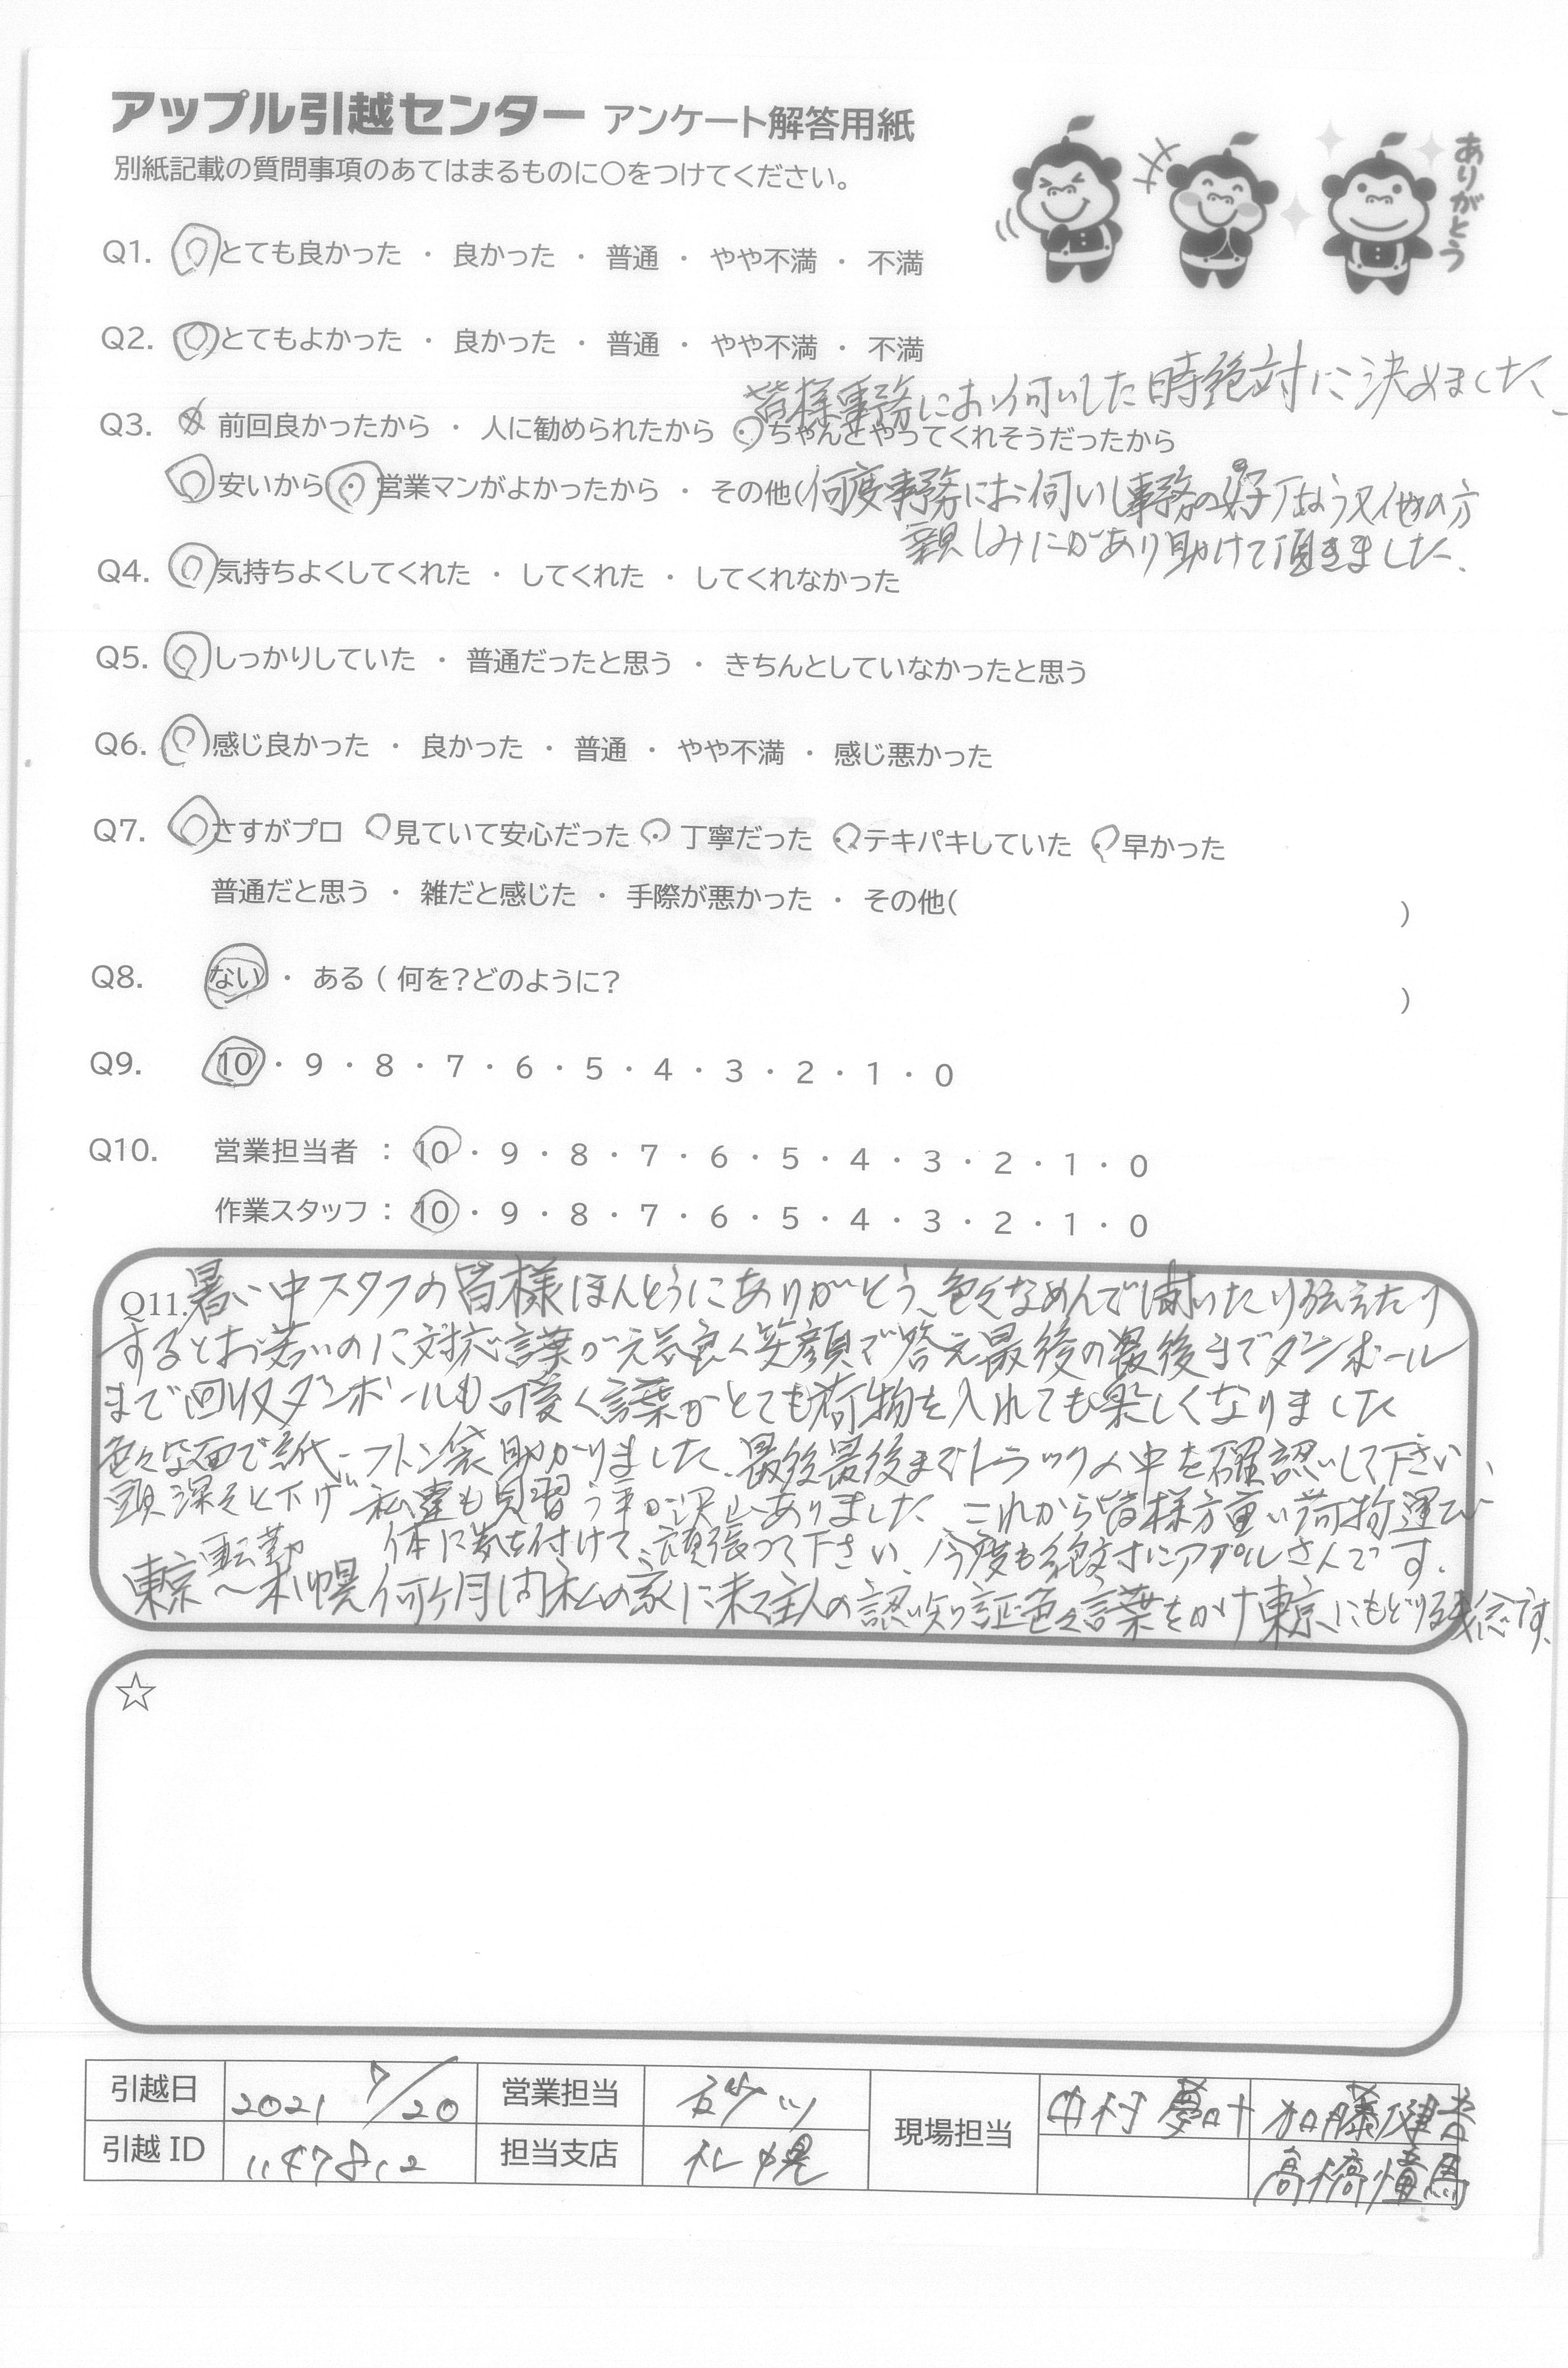 アップル引越センター アンケート解答用紙
別紙記載の質問事項のあてはまるものに○をつけてください。
ありがとう
Q1. とても良かった ・ 良かった ・ 普通 ・ やや不満 ・ 不満
Q2. とてもよかった ・ 良かった ・ 普通 ・ やや不満 ・ 不満
皆様事務にお伺いした時絶対に決めました
Q3. 前回良かったから ・ 人に勧められたから ちゃんとやってくれそうだったから
安いから 営業マンがよかったから ・ その他(何度事務にお伺いし事務の 又他の方
親しみにがあり助けて頂きました.
Q4. 気持ちよくしてくれた ・ してくれた ・ してくれなかった
Q5. しっかりしていた ・ 普通だったと思う ・ きちんとしていなかったと思う
Q6. 感じ良かった ・ 良かった ・ 普通 ・ やや不満 ・ 感じ悪かった
Q7. さすがプロ 見ていて安心だった 丁寧だった テキパキしていた 早かった
普通だと思う ・ 雑だと感じた ・ 手際が悪かった ・ その他( )
Q8. ない ・ ある ( 何を?どのように? )
Q9. 10 ・ 9 ・ 8 ・ 7 ・ 6 ・ 5 ・ 4 ・ 3 ・ 2 ・ 1 ・ 0
Q10. 営業担当者 : 10 ・ 9 ・ 8 ・ 7 ・ 6 ・ 5 ・ 4 ・ 3 ・ 2 ・ 1 ・ 0
作業スタッフ : 10 ・ 9 ・ 8 ・ 7 ・ 6 ・ 5 ・ 4 ・ 3 ・ 2 ・ 1 ・ 0
Q11. 暑い中スタフの皆様ほんとうにありがとう、色々なめんで 伝えたり
するとお若いのに対応言葉が元気良く笑顔で答え最後の最後までダンボール
まで回収ダンボールも 言葉がとても荷物を入れても楽しくなりました
色々な面で紙-フトン袋助かりました、最後最後までトラックの中を確認して下さい、
頭深々と下げ 私達も見習う事が沢山ありました これから皆様方重い荷物運び
体に気を付けて、頑張つて下さい、今度も絶対にアプルさんです.
東京転勤〜札幌何ヶ月間私の家に来て主人の認知証色々言葉をかけ東京にもどり残念です、
☆
引越日 2021 7/20 営業担当 砂川 現場担当 中村 夢叶 加藤健吾
引越 ID 1147812 担当支店 札幌 高橋憧馬